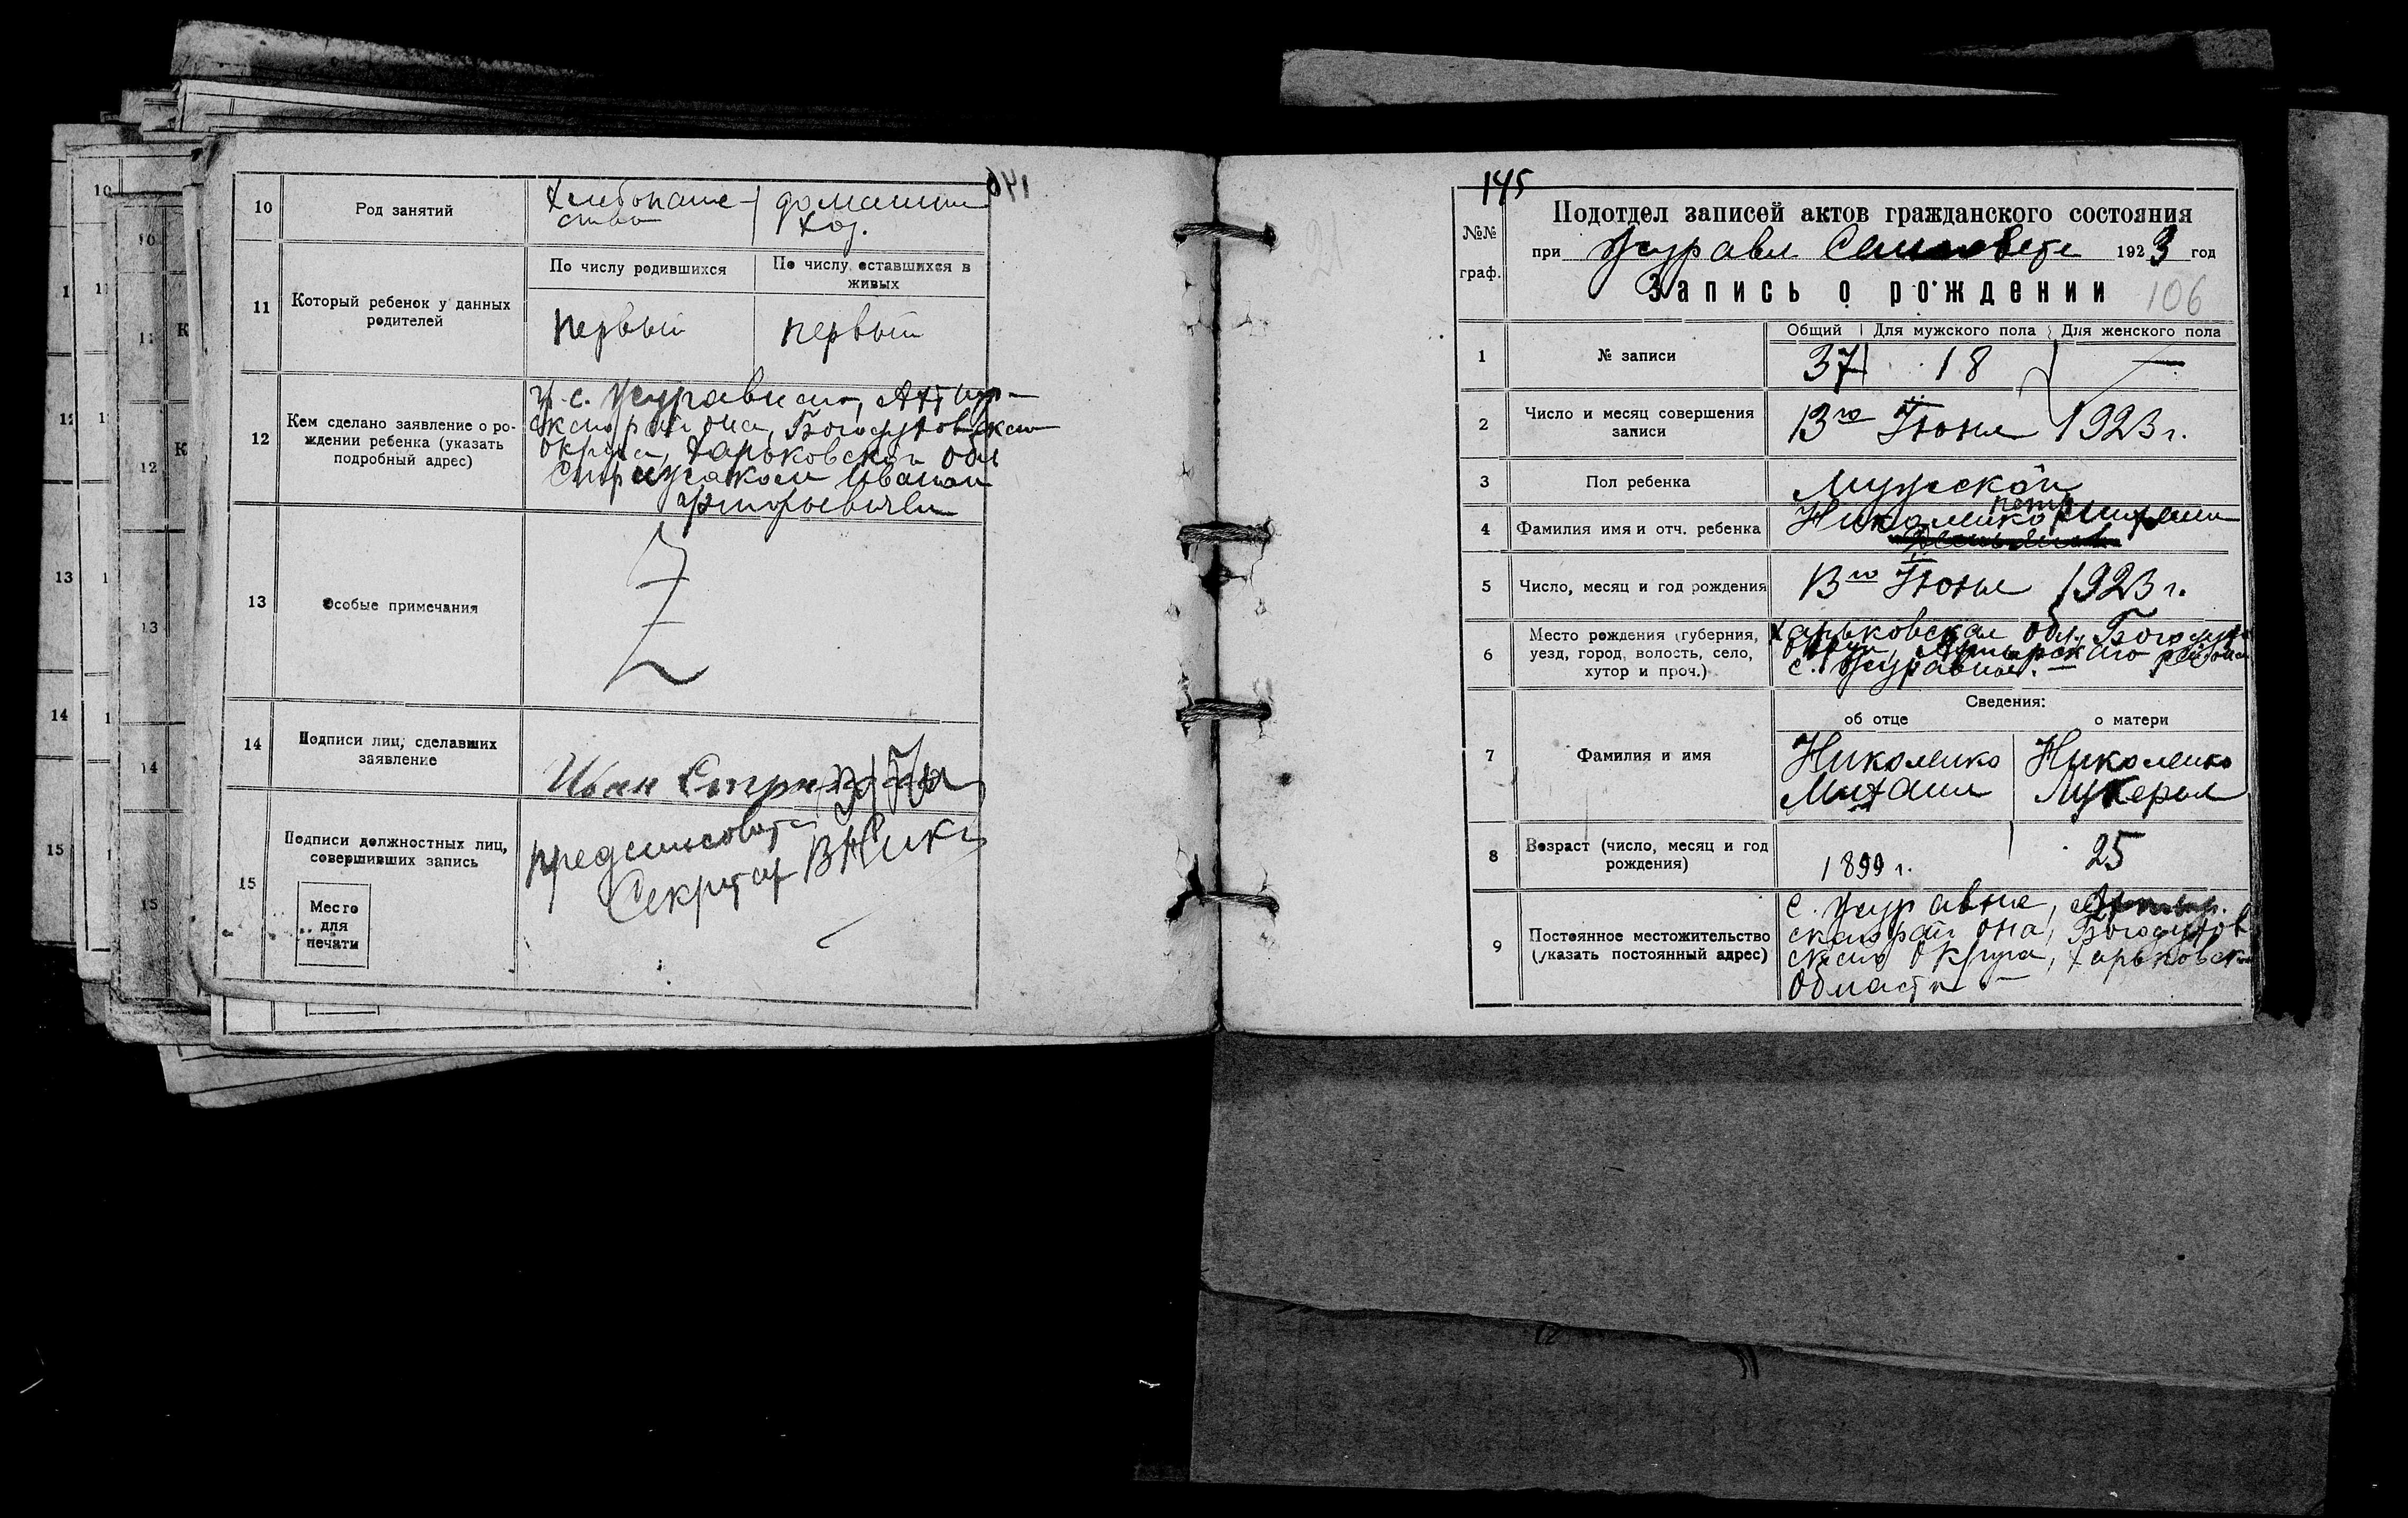 141
10
Род занятий
хлебопаше-
ство
домашнее
хоз.
11
Который ребенок у данных
родителей
По числу родившихся
По числу оставшихся в
живых
первый
первый
12
Кем сделано заявление о ро-
ждении ребенка (указать
подробный адрес)
гр. с. Журавного, Ахтыр-
ского района, Богодуховского
округа, Харьковской обл
Иваном
13
Особые примечания
14
Подписи лиц, сделавших
заявление
Иван
15
Подписи должностных лиц,
совершивших запись
Место
для
печати
Секретар
145
№№
граф.
Подотдел записей актов гражданского состояния
при Журавл Сельсовете 1923 год
Запись о рождении
106
1
№ записи
Общий
Для мужского пола
Для женского пола
37
18
—
2
Число и месяц совершения
записи
13го Июня 1923 г.
3
Пол ребенка
Мужской
4
Фамилия имя и отч. ребенка
Николенко
5
Число, месяц и год рождения
13го Июня 1923 г.
6
Место рождения (губерния,
уезд, город, волость, село,
хутор и проч.)
Харьковская обл. Богодух
округ, Ахтырского района
с. Журавное.
Сведения:
об отце
о матери
7
Фамилия и имя
Николенко
Михаил
Николенко
Лукерья
8
Возраст (число, месяц и год
рождения)
1899 г.
25
9
Постоянное местожительство
(указать постоянный адрес)
с. Журавное, Ахтыр.
ского района, Богодухов
ского округа, Харьковской
области
10
11
12
13
14
15